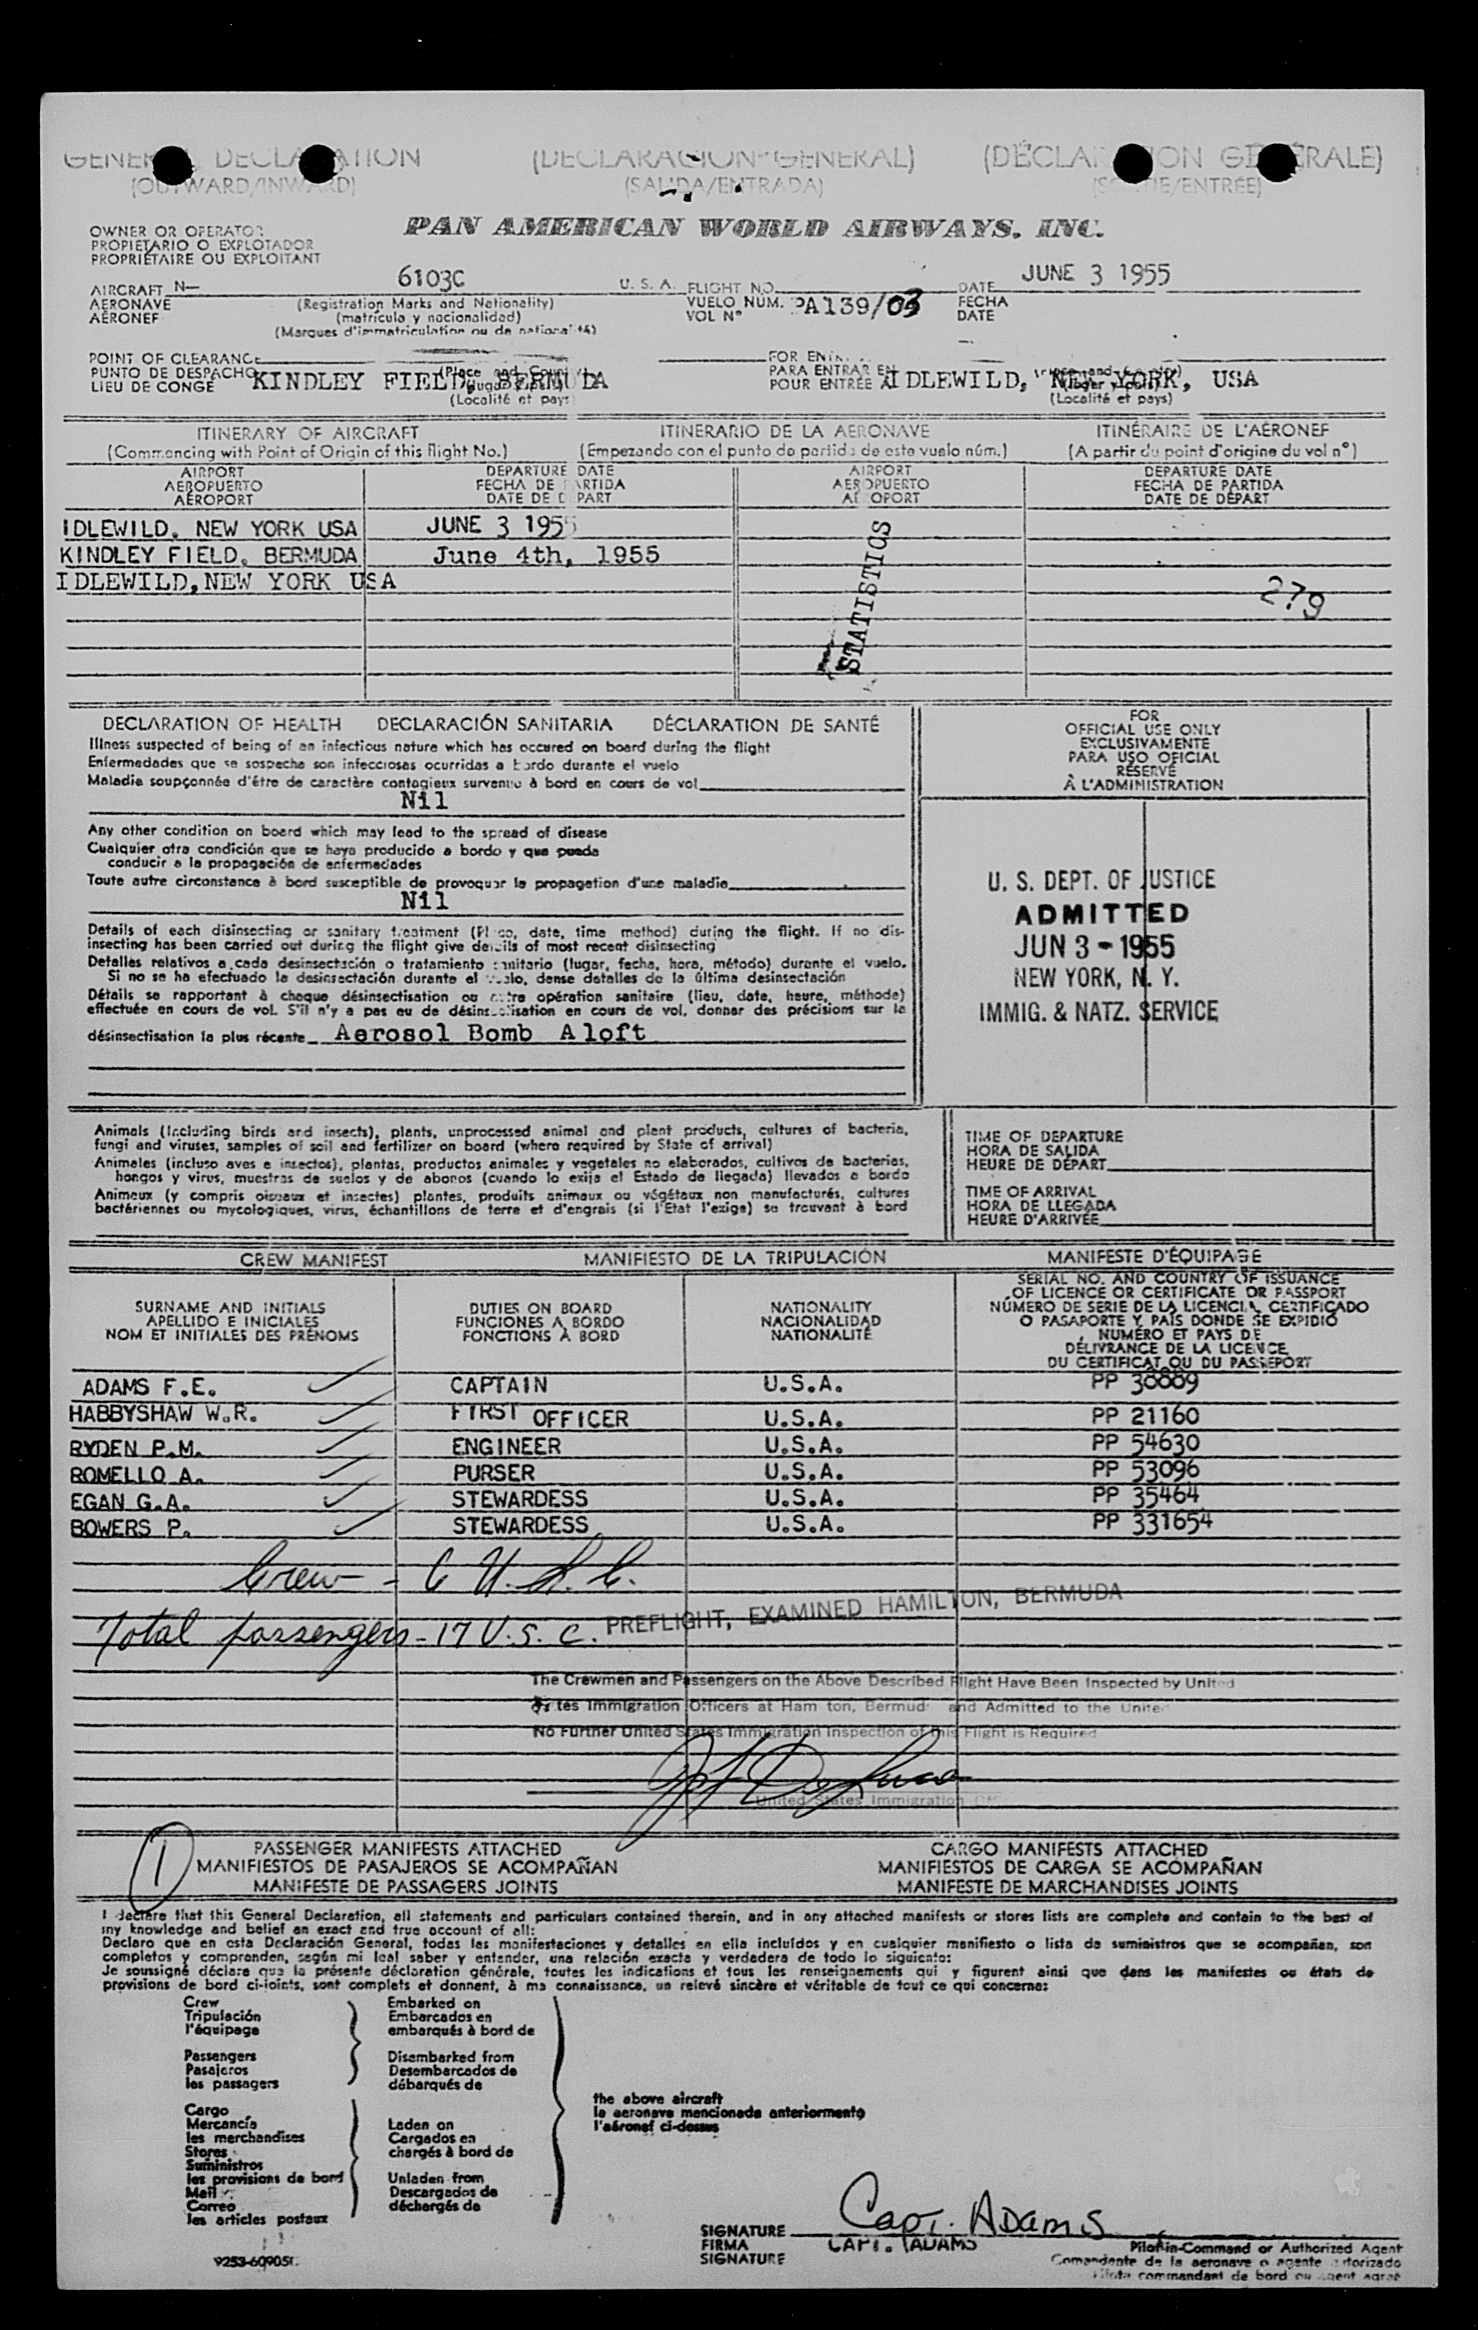 GENERAL DECLARATION (DECLARACION GENERAL) (DÉCLARATION GÉNÉRALE)
(OUTWARD/INWARD) (SALIDA/ENTRADA) (SORTIE/ENTRÉE)
OWNER OR OPERATOR
PROPIETARIO O EXPLOTADOR
PROPRIÉTAIRE OU EXPLOITANT
PAN AMERICAN WORLD AIRWAYS, INC.
AIRCRAFT N— 6103C U. S. A. FLIGHT NO. DATE JUNE 3 1955
AERONAVE (Registration Marks and Nationality) VUELO NUM. PA139/03 FECHA
AÉRONEF (matrícula y nacionalidad) VOL Nº DATE
(Marques d'immatriculation ou de nationalité)
POINT OF CLEARANCE FOR ENTRY
PUNTO DE DESPACHO KINDLEY FIELD, BERMUDA PARA ENTRAR EN IDLEWILD, NEW YORK, USA
LIEU DE CONGÉ POUR ENTRÉE A
(Localité et pays) (Localité et pays)
ITINERARY OF AIRCRAFT ITINERARIO DE LA AERONAVE ITINÉRAIRE DE L'AÉRONEF
(Commencing with Point of Origin of this flight No.) (Empezando con el punto de partida de este vuelo núm.) (A partir du point d'origine du vol nº)
AIRPORT DEPARTURE DATE AIRPORT DEPARTURE DATE
AEROPUERTO FECHA DE PARTIDA AEROPUERTO FECHA DE PARTIDA
AÉROPORT DATE DE DÉPART AÉROPORT DATE DE DÉPART
IDLEWILD, NEW YORK USA JUNE 3 1955
KINDLEY FIELD, BERMUDA June 4th, 1955
IDLEWILD,NEW YORK USA
STATISTICS
279
DECLARATION OF HEALTH DECLARACIÓN SANITARIA DÉCLARATION DE SANTÉ
Illness suspected of being of an infectious nature which has occured on board during the flight
Enfermedades que se sospeche son infecciosas ocurridas a bordo durante el vuelo
Maladie soupçonnée d'être de caractère contagieux survenue à bord en cours de vol
Nil
Any other condition on board which may lead to the spread of disease
Cualquier otra condición que se haya producido a bordo y que pueda
conducir a la propagación de enfermedades
Toute autre circonstance à bord susceptible de provoquer la propagation d'une maladie
Nil
Details of each disinsecting or sanitary treatment (Place, date, time method) during the flight. If no dis-
insecting has been carried out during the flight give details of most recent disinsecting
Detalles relativos a cada desinsectación o tratamiento sanitario (lugar, fecha, hora, método) durante el vuelo.
Si no se ha efectuado la desinsectación durante el vuelo, dense detalles de la última desinsectación
Détails se rapportant à chaque désinsectisation ou autre opération sanitaire (lieu, date, heure, méthode)
effectuée en cours de vol. S'il n'y a pas eu de désinsectisation en cours de vol, donner des précisions sur la
désinsectisation la plus récente Aerosol Bomb Aloft
FOR
OFFICIAL USE ONLY
EXCLUSIVAMENTE
PARA USO OFICIAL
RÉSERVÉ
À L'ADMINISTRATION
U. S. DEPT. OF JUSTICE
ADMITTED
JUN 3 - 1955
NEW YORK, N. Y.
IMMIG. & NATZ. SERVICE
Animals (including birds and insects), plants, unprocessed animal and plant products, cultures of bacteria,
fungi and viruses, samples of soil and fertilizer on board (where required by State of arrival)
Animales (incluso aves e insectos), plantas, productos animales y vegetales no elaborados, cultivos de bacterias,
hongos y virus, muestras de suelos y de abonos (cuando lo exija el Estado de llegada) llevados a bordo
Animaux (y compris oiseaux et insectes) plantes, produits animaux ou végétaux non manufacturés, cultures
bactériennes ou mycologiques, virus, échantillons de terre et d'engrais (si l'Etat l'exige) se trouvant à bord
TIME OF DEPARTURE
HORA DE SALIDA
HEURE DE DÉPART
TIME OF ARRIVAL
HORA DE LLEGADA
HEURE D'ARRIVÉE
CREW MANIFEST MANIFIESTO DE LA TRIPULACIÓN MANIFESTE D'ÉQUIPAGE
SURNAME AND INITIALS
APELLIDO E INICIALES
NOM ET INITIALES DES PRÉNOMS
DUTIES ON BOARD
FUNCIONES A BORDO
FONCTIONS À BORD
NATIONALITY
NACIONALIDAD
NATIONALITÉ
SERIAL NO. AND COUNTRY OF ISSUANCE
OF LICENCE OR CERTIFICATE OR PASSPORT
NÚMERO DE SERIE DE LA LICENCIA, CERTIFICADO
O PASAPORTE Y PAÍS DONDE SE EXPIDIÓ
NUMÉRO ET PAYS DE
DÉLIVRANCE DE LA LICENCE
DU CERTIFICAT OU DU PASSEPORT
ADAMS F.E. CAPTAIN U.S.A. PP 38889
HABBYSHAW W.R. FIRST OFFICER U.S.A. PP 21160
RYDEN P.M. ENGINEER U.S.A. PP 54630
ROMELLO A. PURSER U.S.A. PP 53096
EGAN G.A. STEWARDESS U.S.A. PP 35464
BOWERS P. STEWARDESS U.S.A. PP 331654
Crew - 6 U.S.C.
Total passengers - 17 U.S.C.
PREFLIGHT, EXAMINED HAMILTON, BERMUDA
The Crewmen and Passengers on the Above Described Flight Have Been Inspected by United
States Immigration Officers at Hamilton, Bermuda and Admitted to the United
No Further United States Immigration Inspection of this Flight is Required
United States Immigration
1
PASSENGER MANIFESTS ATTACHED CARGO MANIFESTS ATTACHED
MANIFIESTOS DE PASAJEROS SE ACOMPAÑAN MANIFIESTOS DE CARGA SE ACOMPAÑAN
MANIFESTE DE PASSAGERS JOINTS MANIFESTE DE MARCHANDISES JOINTS
I declare that this General Declaration, all statements and particulars contained therein, and in any attached manifests or stores lists are complete and contain to the best of
my knowledge and belief an exact and true account of all:
Declaro que en esta Declaración General, todas las manifestaciones y detalles en ella incluídos y en cualquier manifiesto o lista de suministros que se acompañan, son
completos y comprenden, según mi leal saber y entender, una relación exacta y verdadera de todo lo siguiente:
Je soussigné déclare que la présente déclaration générale, toutes les indications et tous les renseignements qui y figurent ainsi que dans les manifestes ou états de
provisions de bord ci-joints, sont complets et donnent, à ma connaissance, un relevé sincère et véritable de tout ce qui concerne:
Crew Embarked on
Tripulación Embarcados en
l'équipage embarqués à bord de
Passengers Disembarked from
Pasajeros Desembarcados de
les passagers débarqués de
the above aircraft
la aeronave mencionada anteriormente
l'aéronef ci-dessus
Cargo
Mercancía Laden on
les merchandises Cargados en
Stores chargés à bord de
Suministros
les provisions de bord Unladen from
Mail Descargados de
Correo déchargés de
les articles postaux
SIGNATURE Capt. Adams
FIRMA CAPT. ADAMS
SIGNATURE
Pilot-in-Command or Authorized Agent
Comandante de la aeronave o agente autorizado
Pilote commandant de bord ou agent agréé
9253-609051